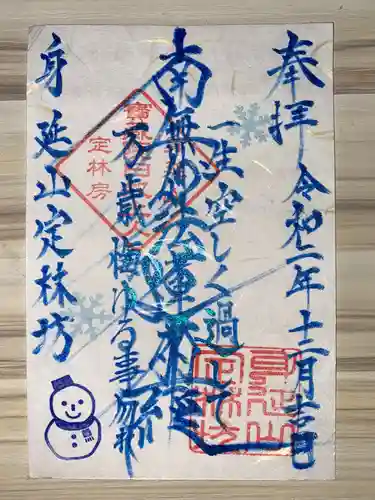 奉拝 令和二年十二月吉日
一生空しく過して
南無妙法蓮華経
万歳悔ゆる事勿れ
身延山定林坊
定林房